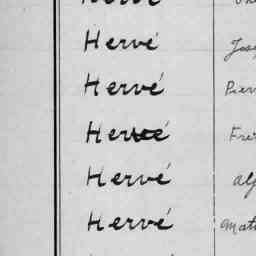 Hervé
Hervé Jose
Hervé Pierr
Hervé Fré
Hervé Alf
Hervé Mat